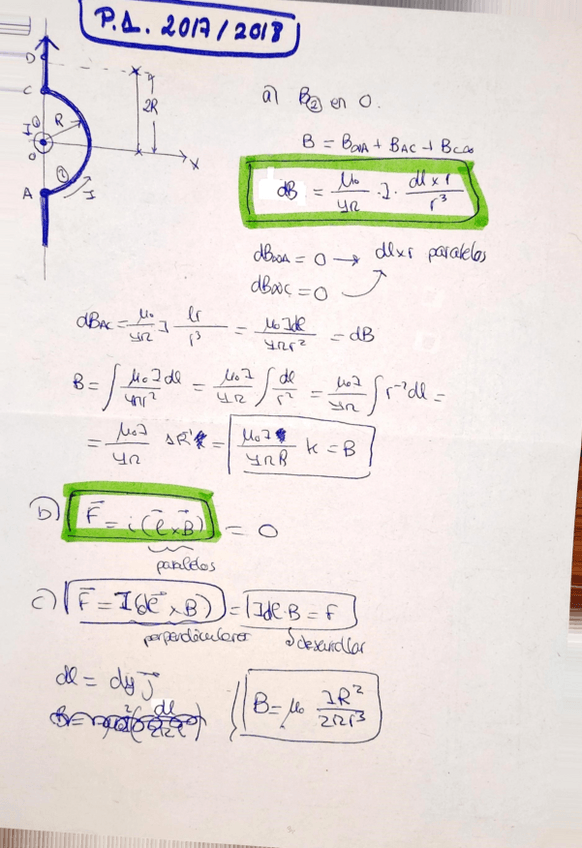 P.1. 2017/2018
D
C
I①
R
2R
O
X
②
A
I
a) B② en O.
B = B∞A + BAC + BC∞
dB = μ₀/4π · I · dl x r / r³
dB∞A = 0 → dlxr paralelos
dB∞C = 0
dBAC = μ₀/4π I lr/r³ = μ₀Idl/4πr² = dB
B = ∫ μ₀Idl/4πr² = μ₀I/4π ∫ dl/r² = μ₀I/4π ∫ r⁻²dl =
= μ₀I/4π = μ₀I/4πR k = B
b) F⃗ = i(l⃗xB⃗) = 0
paralelos
c) F⃗ = I(dl⃗ x B) = Idl·B = F
perpendiculares
desarrollar
dl = dy j⃗
B = μ₀ IR²/2πr³